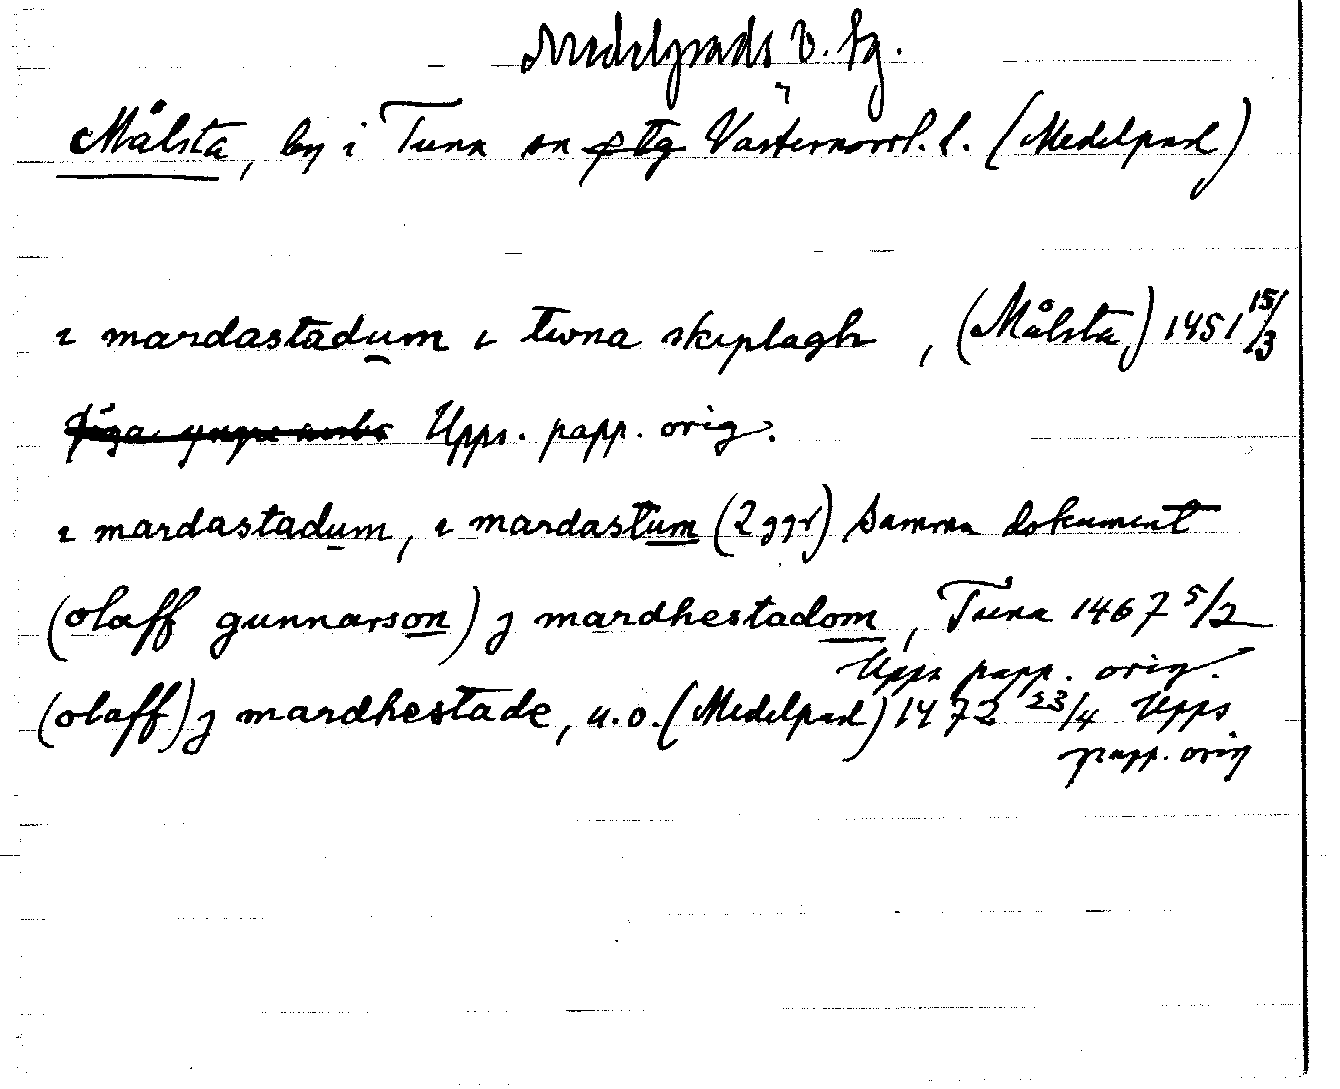 Medelpads v. tg.
Målsta, by i Tuna sn Västernorrl. l. (Medelpad)
i mardastadum i twna skiplagh, (Målsta) 1451 15/3
Upps. papp. orig.
i mardastadum, i mardastum (2 ggr) samma dokument
(olaff gunnarson) j mardhestadom, Tuna 1467 5/2
Upps papp. orig.
(olaff) j mardhestade, u.o. (Medelpad) 1472 23/4 Upps
papp. orig